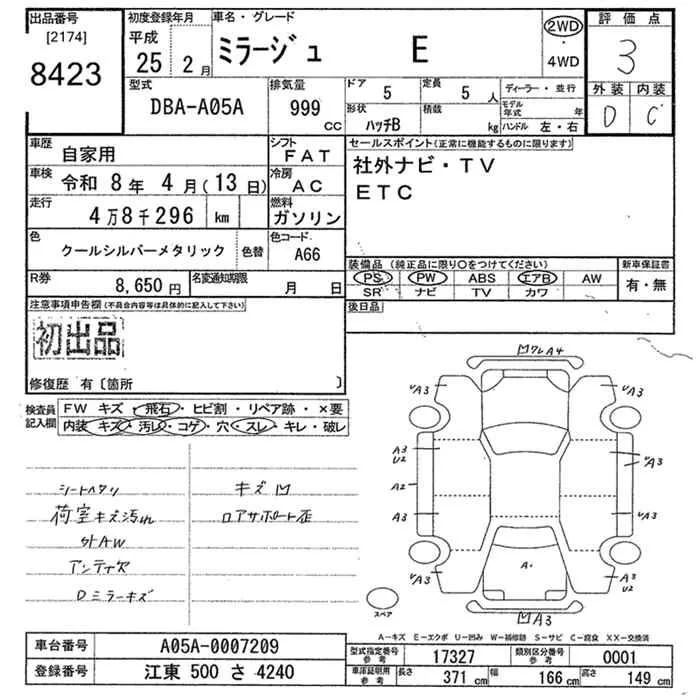 出品番号
[2174]
8423
初度登録年月
平成
25 2月
車名・グレード
ミラージュ E
2WD
・
4WD
評価点
3
外装 内装
D C
型式
DBA-A05A
排気量
999 CC
ドア 5
定員 5人
形状 ハッチB
積載 kg
ディーラー・並行
モデル年式 年
ハンドル 左・右
車歴 自家用
シフト FAT
車検 令和 8年 4月(13日)
冷房 AC
走行 4万8千296 km
燃料 ガソリン
色 クールシルバーメタリック 色替
色コード A66
R券 8,650円
名変通知期限 月 日
セールスポイント(正常に機能するものに限ります)
社外ナビ・TV
ETC
装備品(純正品に限り○をつけてください)
新車保証書
PS PW ABS エアB AW
SR ナビ TV カワ
有・無
後日品
注意事項申告欄(不具合内容等は具体的に記入して下さい)
初出品
修復歴 有〔箇所 〕
検査員記入欄
FW キズ・飛石・ヒビ割・リペア跡・×要
内装 キズ・汚レ・コゲ・穴・スレ・キレ・破レ
シートヘタリ
荷室キズ汚れ
社外AW
アンテナ欠
Dミラーキズ
キズ凹
ロアサポート歪
凹ワレA4
A3
A3
A3
U2
A3
A2
A3
A3
A3
A3
U2
A・
凹A3
スペア
A−キズ E−エクボ U−凹み W−補修跡 S−サビ C−腐食 XX−交換済
車台番号 A05A-0007209
登録番号 江東 500 さ 4240
型式指定番号 参考 17327
類別区分番号 参考 0001
車庫証明用 参考 長さ 371 cm 幅 166 cm 高さ 149 cm